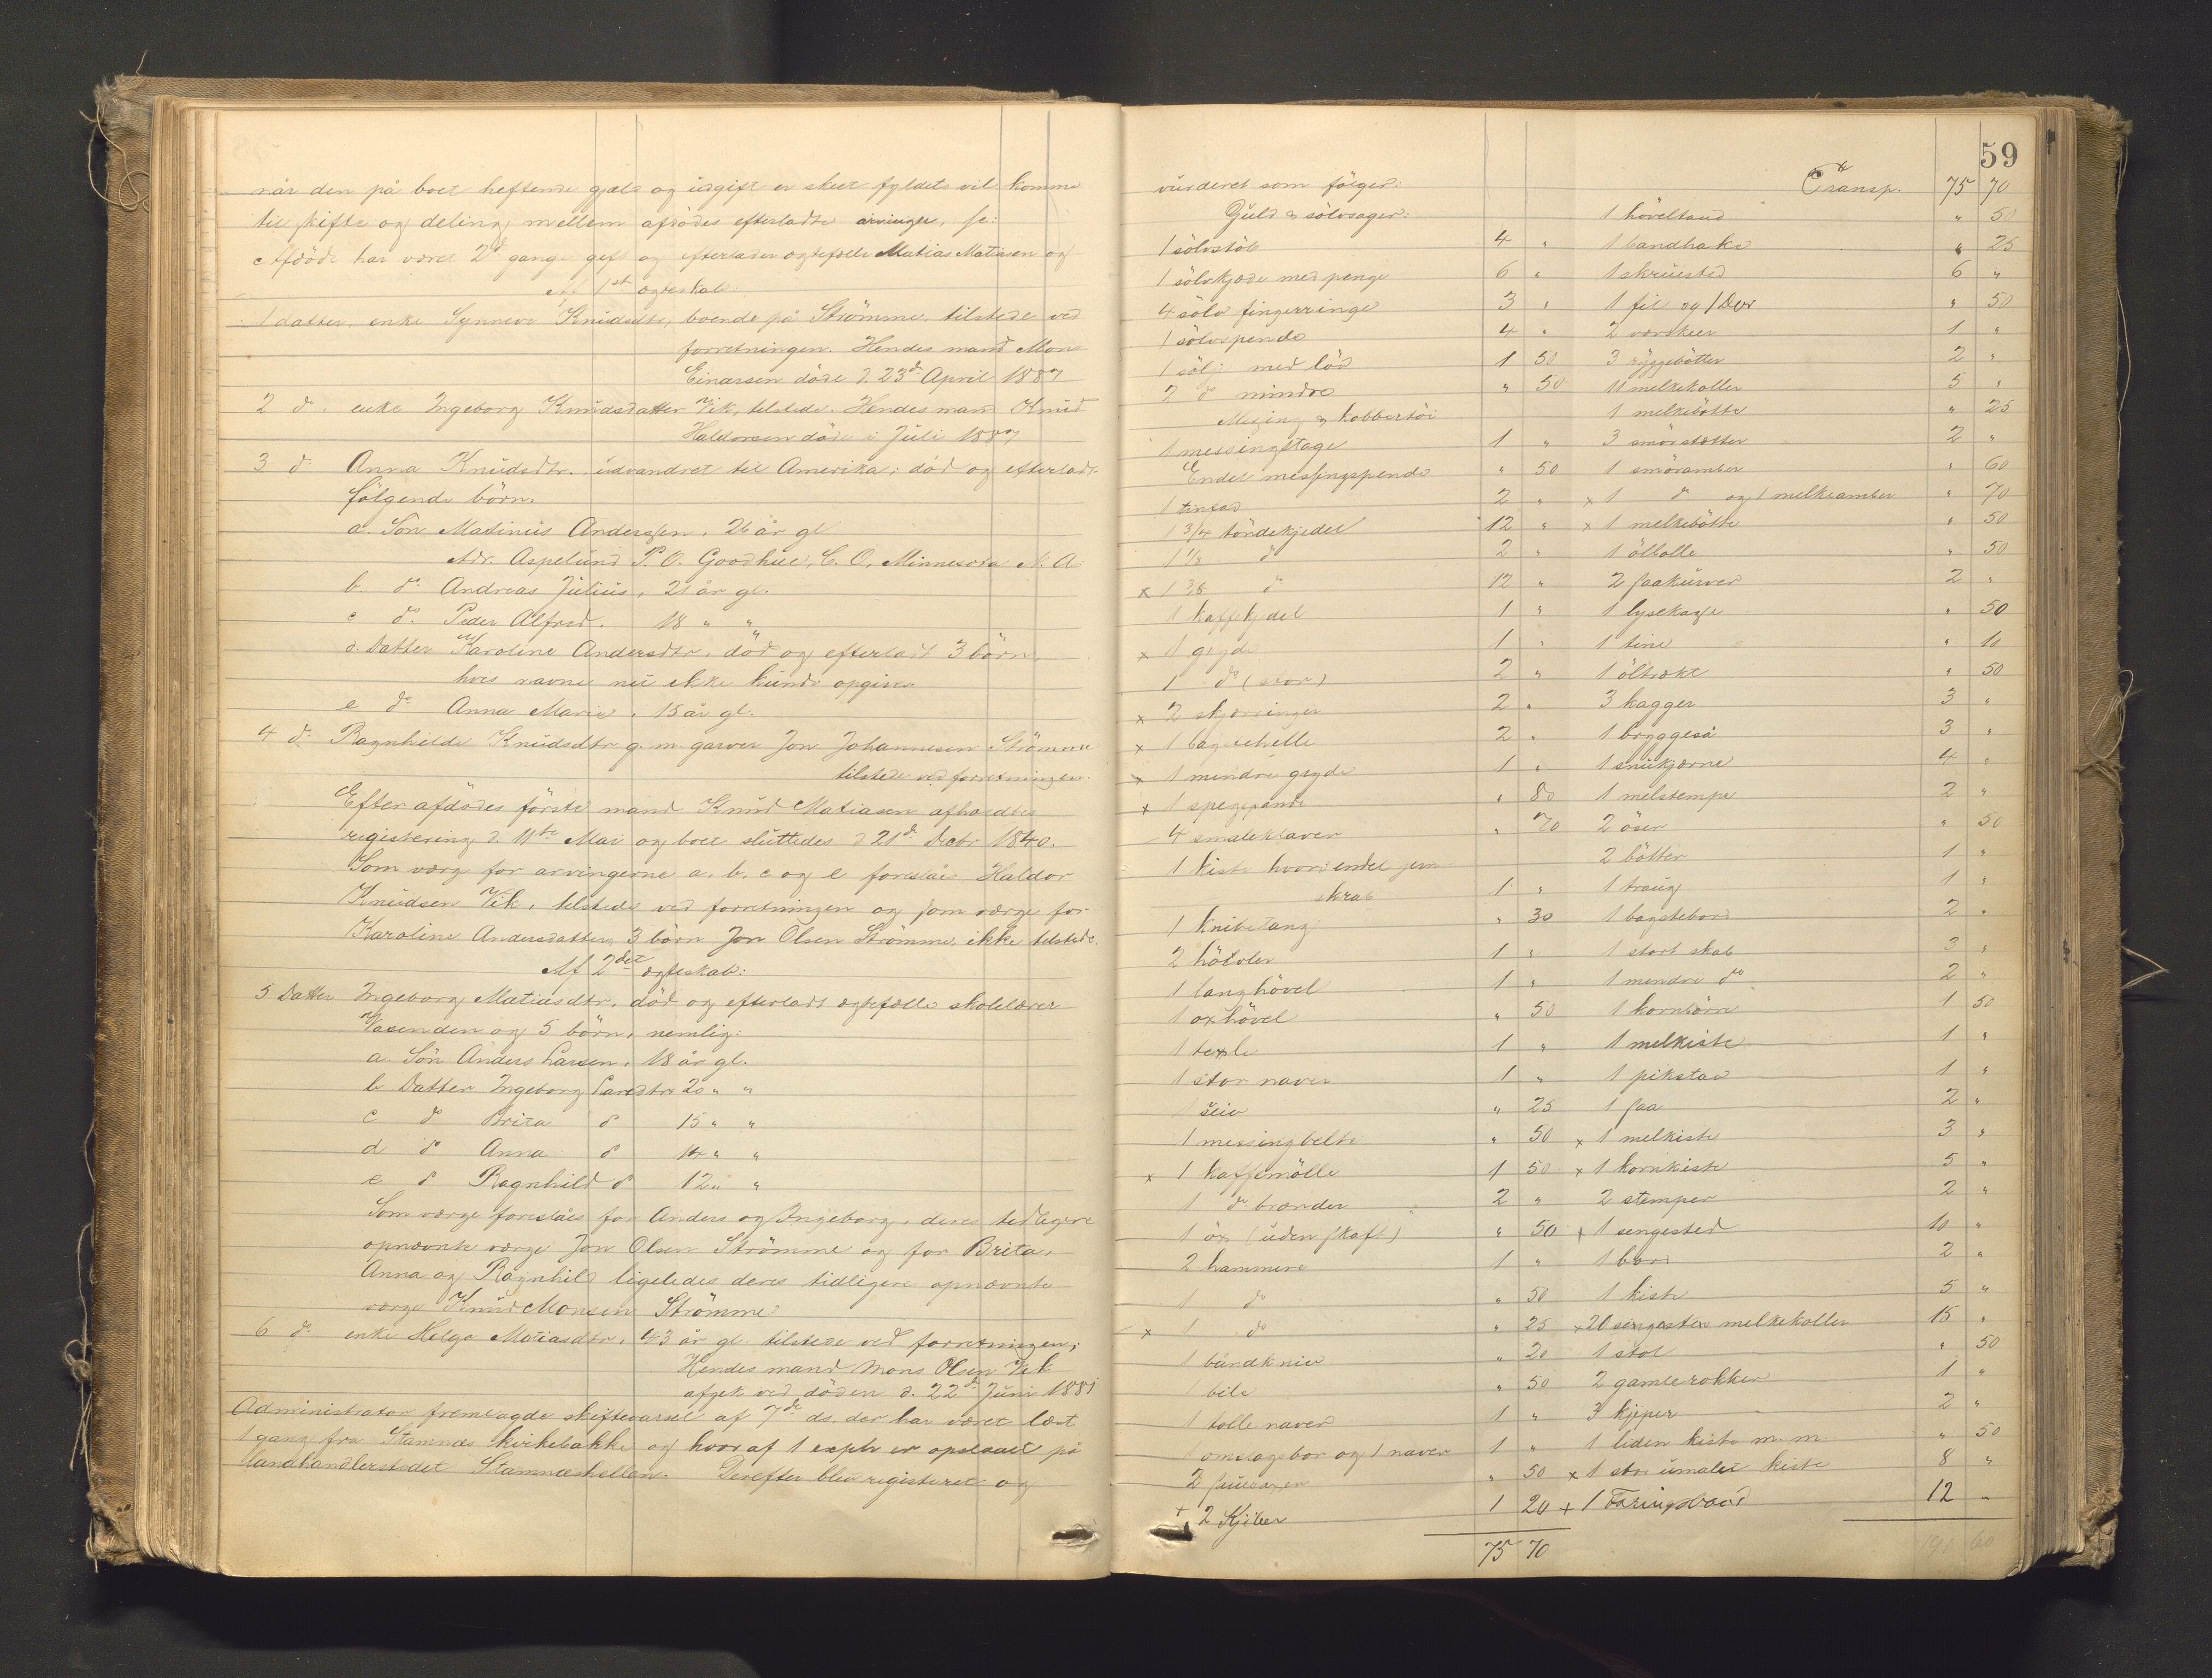 når den på boet heftende gjæld og udgift er skeet fyldets vil komme
til skifte og deling mellem afdødes efterladte arvinger, se:
Afdøde har været 2 gange gift og efterlader ægtefælle Matias Matiasen og
Af 1st ægteskab:
1 datter, enke Synneve Knudsdtr, boende på Strömme, tilstede ved
forretningen. Hendes mand Mons
Einarsen døde d. 23d April 1887
2 do enke Ingeborg Knudsdatter Vik, tilstede. Hendes man Knud
Haldorsen döde i Juli 1887
3 do Anna Knudsdtr. udvandret til Amerika; död og efterladt
fölgende börn.
a. Sön Matinius Anderssen, 26 år gl
Adr. Aspelund P.O. Goodhue, C.O. Minnesota N.A.
b. do Andreas Julius, 21 år gl.
c do Peder Alfred, 18 " "
d. Datter Karoline Andersdtr. död og efterladt 3 börn,
hvis navne nu ikke kunde opgives
e do Anna Marie, 15 år gl.
4 do Ragnhilde Knudsdtr g. m. garver Jon Johannesen Strömme
tilstede ved forretningen.
Efter afdödes förste mand Knud Matiasen afholdtes
registrering d. 11te Mai og boet sluttedes d 21d Decbr 1840.
Som værge for arvingerne a. b. c og e foreslåes Haldor
Knudsen Vik, tilstede ved forretningen og som værge for
Karoline Andersdatters 3 börn Jon Olsen Strömme, ikke tilstede.
Af 2det ægteskab:
5 Datter Ingeborg Matiasdtr, död og efterladt ægtefælle skolelærer
Vasenden og 5 börn, nemlig:
a. Sön Anders Larsen, 18 år gl.
b Datter Ingeborg Larsdtr 20 " "
c do Brita do 15 " "
d do Anna do 14 " "
e do Ragnhild do 12 " "
Som værge foreslåes for Anders og Ingeborg, deres tidligere
opnævnte værge Jon Olsen Strömme og for Brita,
Anna og Ragnhild ligeledes deres tidligere opnævnte
værge Knud Monsen Strömme
6 do enke Helga Matiasdtr, 43 år gl. tilstede ved forretningen;
Hendes mand Mons Olsen Vik
afgik ved döden d. 22d Juni 1881
Administrator fremlagde skiftevarsel af 7de ds. der har været læst
1 gang fra Stamnæs kirkebakke og hvoraf 1 explr er opslaaet på
landhandlerstedet Stamneshellen. Derefter blev registeret og
59
vurderet som fölger:
Guld & sölvsager:
1 sölvstöb 4 "
1 sölvkjæde med penge 6 "
4 sölv fingerringe 3 "
1 sölvspende 4 "
1 sölj med löd 1 50
2 do mindre " 50
Messing & kobbertöi
1 messingstage 1 "
Endel messingspende " 50
1 tinfad 2 "
1 3/4 töndekjedel 12 "
1 1/2 do 2 "
x 1 36 do 12 "
1 kaffekjedel 1 "
x 1 gryde 1 "
1 do (stor) 2 "
x 2 skjæringer 2 "
x 1 bagstehelle 2 "
x 1 mindre gryde 1 "
x 1 stegepande " 80
4 smaleklaver " 70
1 kiste hvori endel jern
skrab 1 "
1 knibetang " 30
2 hövler 1 "
1 langhövel 1 "
1 oxhövel " 50
1 texle 1 "
1 stor naver 1 "
1 " 25
1 messingbelte " 50
x 1 kaffemölle 1 50
1 do brænder 2 "
1 öx (uden skaft) " 50
2 hammere 1 "
1 do " 50
x 1 do " 25
1 båndkniv " 20
1 bile " 50
1 tolle naver 1 "
1 omslagsbor og 1 naver 1 "
2 sauesaxer " 50
+ 2 Kjiler 1 20
75 70
Transp. 75 70
1 höveltand " 50
1 bandhake " 25
1 skruested 6 "
1 fil og 1 Dor " 50
2 vævskeer 1 "
3 ryggebötter 2 "
11 melkekoller 5 "
1 melkebötte " 25
3 smörstetter 2 "
1 smörambar " 60
x 1 do og 1 melkeambar " 70
x 1 melkebötte " 50
1 ölbolle " 50
2 saakurver 2 "
1 lysekagge " 50
1 tine " 10
1 öltrækt " 50
3 kagger 3 "
1 bryggeså 3 "
1 snukjærne 4 "
1 melstempe 2 "
2 öser " 50
2 bötter 1 "
1 traug 1 "
1 bagstebord 2 "
1 stort skab 3 "
1 mindre do 2 "
1 kornbörn 1 50
1 melkiste 1 "
1 pikstav 1 "
1 saa 2 "
x 1 melkiste 3 "
x 1 kornkiste 5 "
2 stemper 2 "
x 1 sengested 10 "
1 bord 2 "
1 kiste 5 "
x 20 melkekoller 15 "
1 stol " 50
2 gamle rokker 1 "
3 kjeper 2 "
1 liden kiste m. m. " 50
x 1 stor umalet kiste 8 "
+ 1 Færingsbaad 12 "